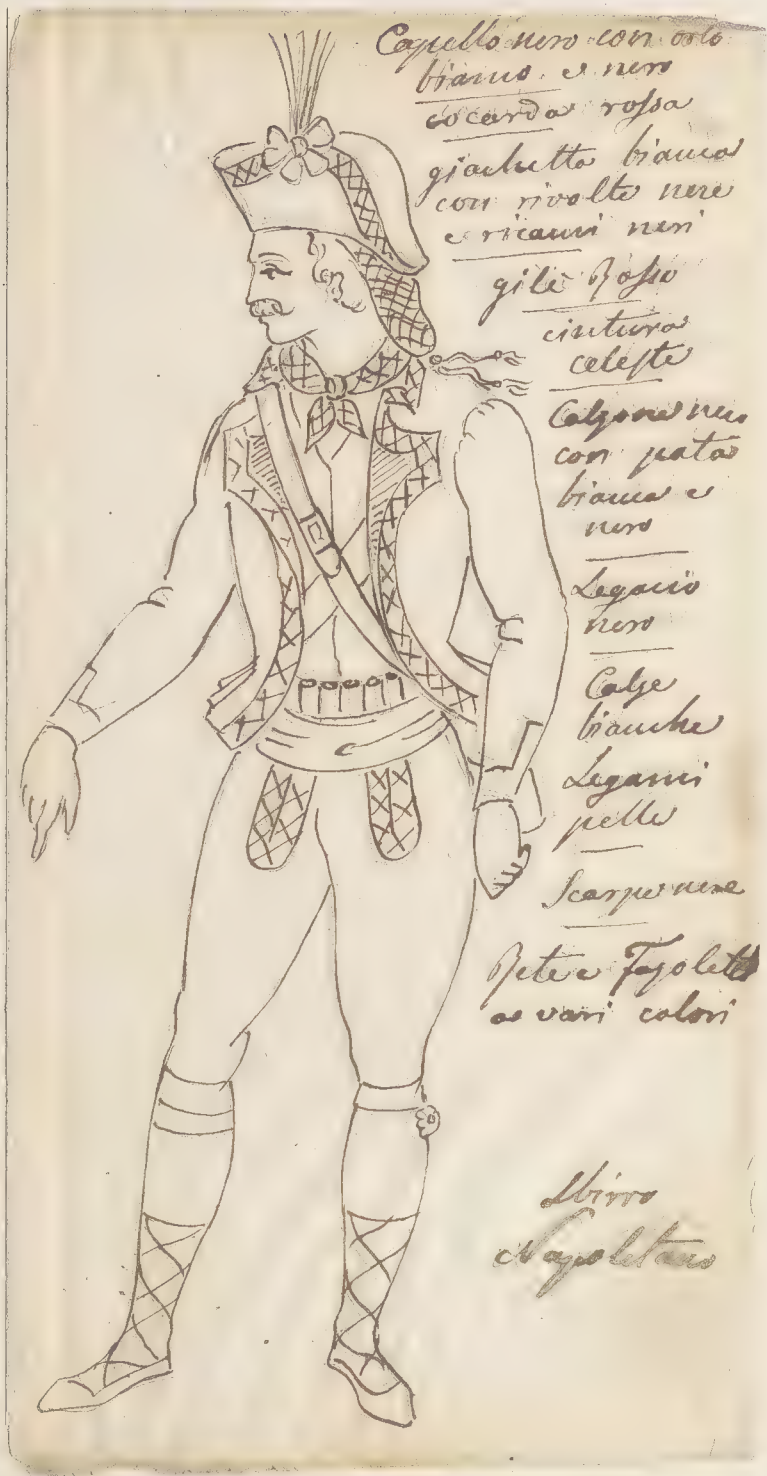 Capello nero con orlo
bianco e nero
cocarda rossa
giachetta bianca
con rivolte nere
e ricami neri
gilè Rosso
cintura
celeste
Calzone nero
con pata
bianca e
nero
Legacio
nero
Calze
bianche
Legami
pelle
Scarpe nere
Rete e Fazoletto
a vari colori
Sbirro
Napoletano